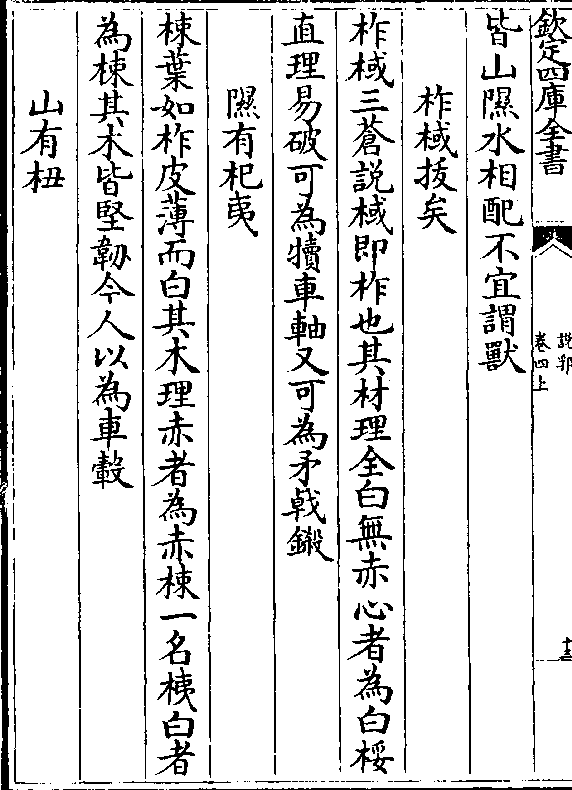 欽定四庫全書
說郛
卷四上
十三
皆山隰水相配不宜謂獸
柞棫拔矣
柞棫三蒼説棫即柞也其材理全白無赤心者為白桵
直理易破可為犢車軸又可為矛戟鎩
隰有杞夷
棟葉如柞皮薄而白其木理赤者為赤棟一名桋白者
為棟其木皆堅韌今人以為車轂
山有杻